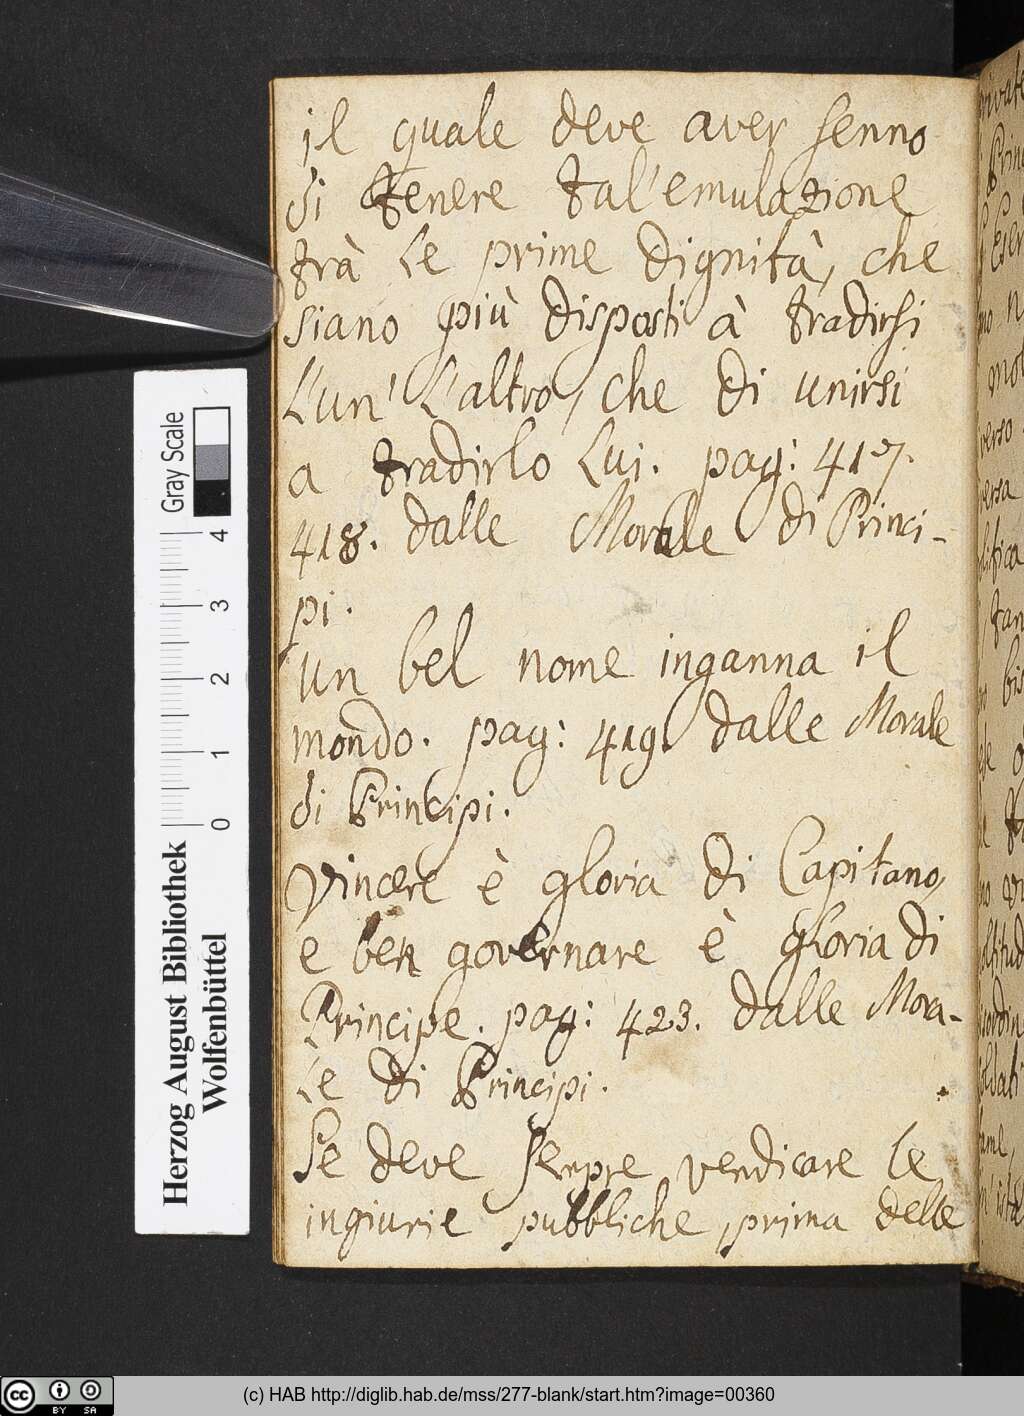 il quale deve aver senno
di tenere tal'emulazione
trà le prime dignità, che
siano più disposti à tradirsi
l'un' l'altro, che di unirsi
a tradirlo lui. pag: 417.
418. dalle Morale di Princi-
pi.
Un bel nome inganna il
mondo. pag: 419. dalle Morale
di Principi.
Vincere è gloria di Capitano,
e ben governare è gloria di
Principe. pag: 423. dalle Mora-
le di Principi.
Se deve sempre vendicare le
ingiurie pubbliche, prima delle
Gray Scale
0 1 2 3 4
Herzog August Bibliothek
Wolfenbüttel
cc BY SA
(c) HAB http://diglib.hab.de/mss/277-blank/start.htm?image=00360